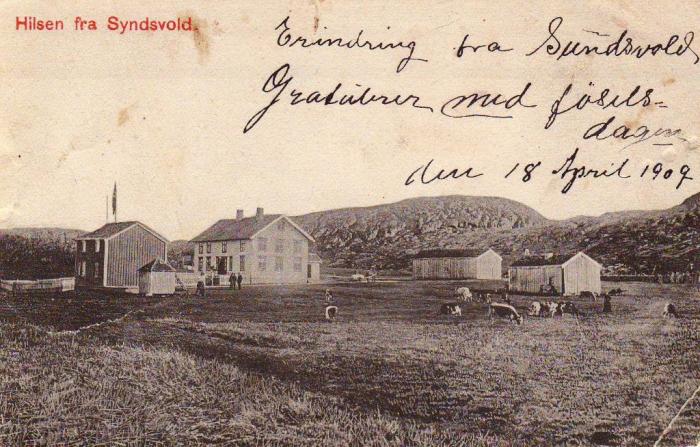 Hilsen fra Syndsvold.
Erindring fra Sundsvold
Gratulerer med føsels=
dagen
den 18 April 1909